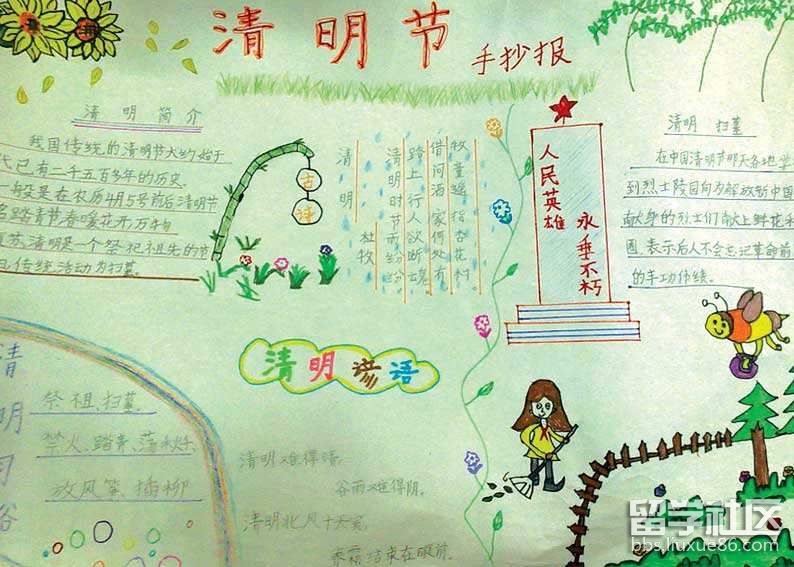 清明节
手抄报
清明简介
我国传统的清明节大约始于
代,已有二千五百多年的历史。
一般是在农历4月5号前后清明节
名踏青节春暖花开万物
苏,清明是一个祭祀祖先的节
日,传统活动为扫墓。
古诗
清明
杜牧
清明时节雨纷纷
路上行人欲断魂
借问酒家何处有
牧童遥指杏花村。
人民英雄
永垂不朽
清明 扫墓
在中国清明节那天各地学
到烈士陵园向为解放新中国
献身的烈士们献上鲜花和
圈,表示后人不会忘记革命前
的丰功伟绩。
清明谚语
清明难得晴,
谷雨难得阴。
清明北风十天寒,
春霜结束在眼前。
清明习俗
祭祖、扫墓、
禁火、踏青、荡秋千
放风筝、插柳
留学社区
bbs.liuxue86.com